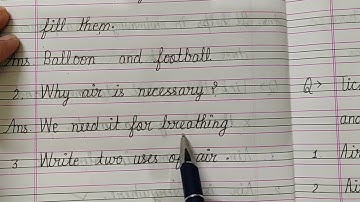 fill them.
Ans. Balloon and football
2. Why air is necessary?
Ans. We need it for breathing
3 Write two uses of air.
Q>
and
1 Air
2 Ai